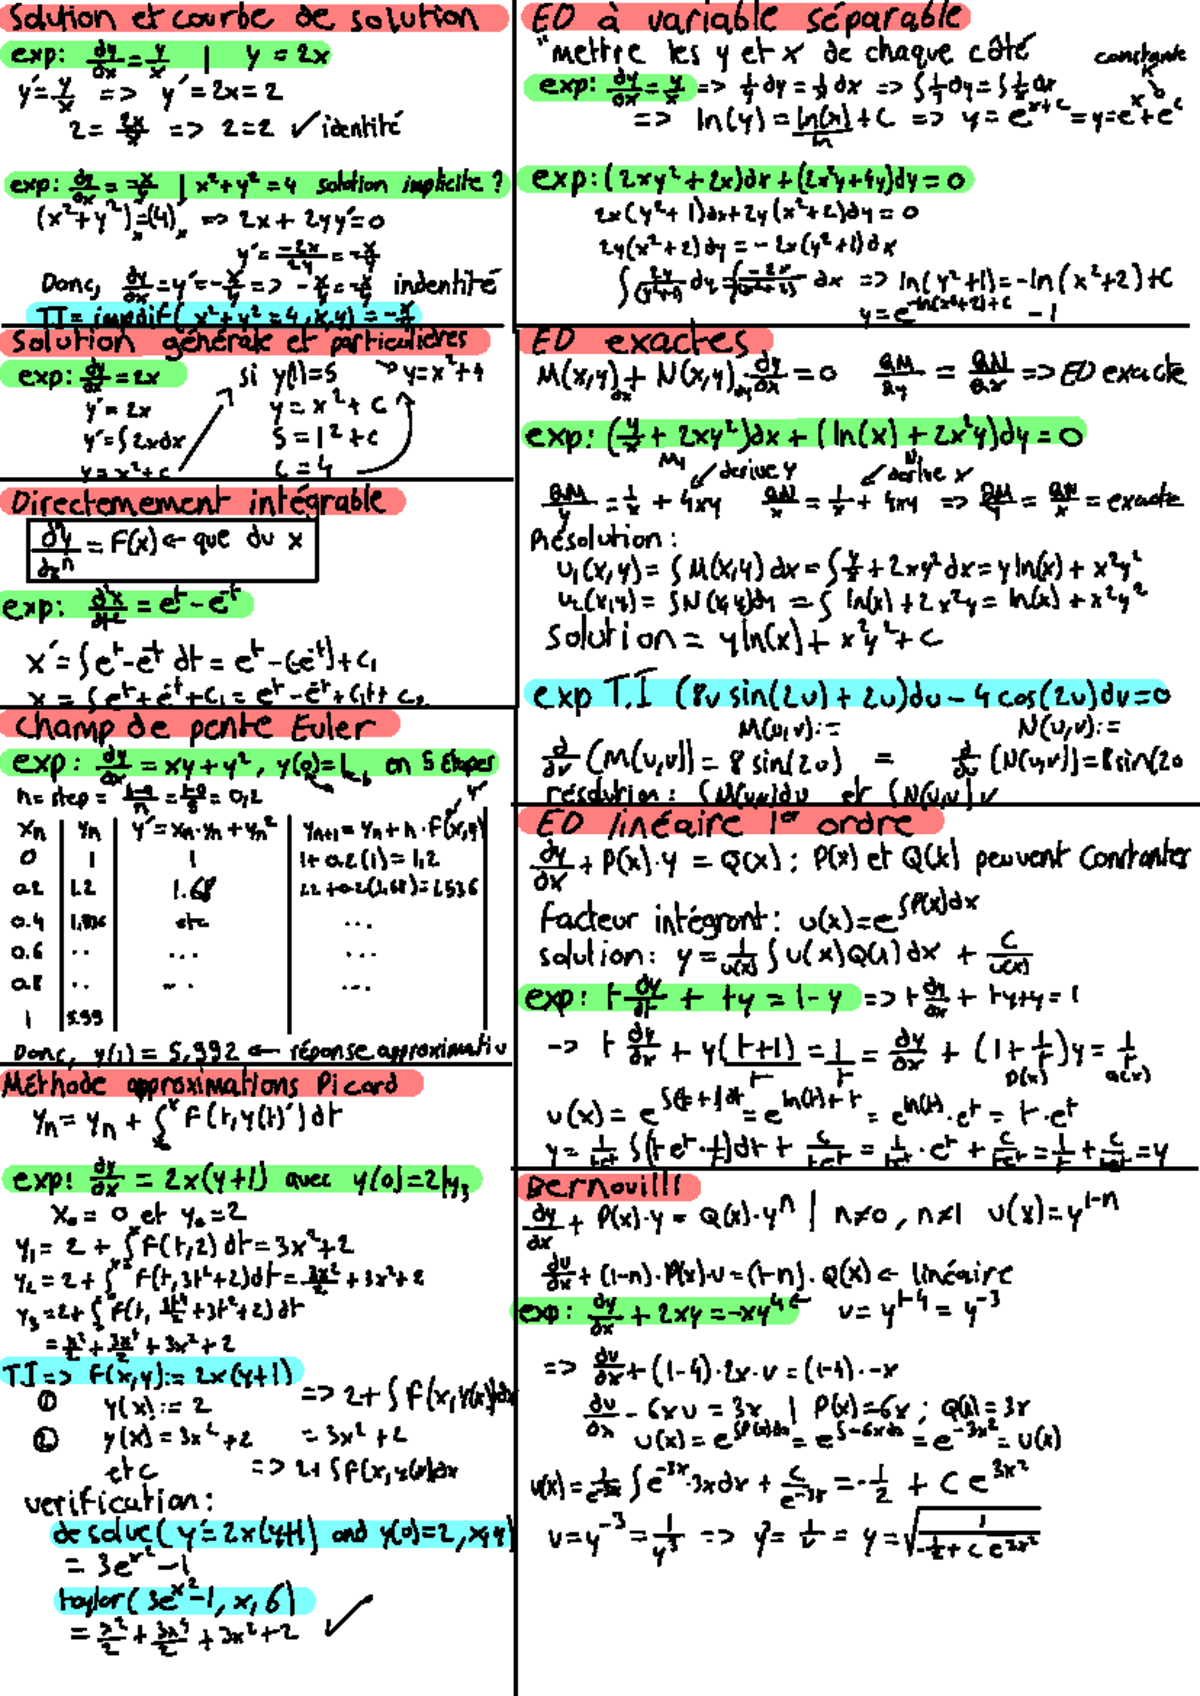 Solution et courbe de solution
exp: dy/dx = y/x | y = 2x
y' = y/x => y' = 2x = 2
2 = 2x/x => 2 = 2 ✓ identité
exp: dy/dx = -x/y | x² + y² = 4 solution implicite ?
(x² + y²)' = (4)' => 2x + 2yy' = 0
y' = -2x/2y = -x/y
Donc, dy/dx = y' = -x/y => -x/y = -x/y indentité
TI = impdif(x² + y² = 4, x, y) = -x/y
Solution générale et particulières
exp: dy/dx = 2x si y(1) = 5 -> y = x² + 4
y' = 2x y = x² + c
y' = ∫2xdx 5 = 1² + c
y = x² + c c = 4
Directemement intégrable
dⁿy/dxⁿ = F(x) <- que du x
exp: d²x/dt² = e^t - e^-t
x' = ∫e^t - e^-t dt = e^t - (-e^-t) + c₁
x = ∫e^t + e^-t + c₁ = e^t - e^-t + c₁t + c₂
Champ de pente Euler
exp: dy/dx = xy + y², y(0) = 1, en 5 étapes
h = step = (b-a)/n = (1-0)/5 = 0,2
xn | yn | y' = xn·yn + yn² | yn+1 = yn + h·F(x,y)
0 | 1 | 1 | 1 + 0.2(1) = 1,2
0.2 | 1.2 | 1.68 | 1.2 + 0.2(1,68) = 1.536
0.4 | 1,536 | etc | ...
0.6 | .. | ... | ...
0.8 | .. | ... | ...
1 | 5.99
Donc, y(1) = 5,992 <- réponse approximativ
Méthode approximations Picard
yn = yn + ∫ F(t, y(t)') dt
exp! dy/dx = 2x(y+1) avec y(0) = 2 | y₃
x₀ = 0 et y₀ = 2
y₁ = 2 + ∫ F(t,2) dt = 3x² + 2
y₂ = 2 + ∫ F(t, 3t² + 2) dt = 3x²/2 + 3x² + 2
y₃ = 2 + ∫ F(t, 3t⁴/2 + 3t² + 2) dt
= x²/2 + 3x⁴/2 + 3x² + 2
T.I => F(x,y) := 2x(y+1)
① y(x) := 2 => 2 + ∫F(x, y(x))dx
② y(x) = 3x² + 2 = 3x² + 2
etc => 2 + ∫F(x, y(x))dx
verification:
desolve(y' = 2x(y+1) and y(0) = 2, x, y)
= 3e^x² - 1
taylor(3e^x² - 1, x, 6)
= x²/2 + 3x⁴/2 + 3x² + 2 ✓
ED à variable séparable
"mettre les y et x de chaque côté
constante
exp: dy/dx = y/x => 1/y dy = 1/x dx => ∫1/y dy = ∫1/x dx
=> ln(y) = ln(x)/ln + C => y = e^x+c = y = e^x + e^c
exp: (2xy² + 2x)dx + (2x²y + 4y)dy = 0
2x(y² + 1)dx + 2y(x² + 2)dy = 0
2y(x² + 2)dy = -2x(y² + 1)dx
∫ 2y/(y²+1) dy = ∫ -2x/(x²+2) dx => ln(y² + 1) = -ln(x² + 2) + C
y = e^-ln(x²+2)+c - 1
ED exactes
M(x,y)dx + N(x,y)dy dy/dx = 0 ∂M/∂y = ∂N/∂x => ED exacte
exp: (y/x + 2xy²)dx + (ln(x) + 2x²y)dy = 0
M, derive y N, derive x
∂M/y = 1/x + 4xy ∂N/x = 1/x + 4xy => ∂M/y = ∂N/x = exacte
Résolution :
u₁(x,y) = ∫M(x,y)dx = ∫y/x + 2xy²dx = yln(x) + x²y²
u₂(x,y) = ∫N(x,y)dy = ∫ ln(x) + 2x²y = ln(x) + x²y²
solution = yln(x) + x²y² + c
exp T.I (8v sin(2u) + 2u)du - 4cos(2u)dv = 0
M(u,v) := N(u,v) :=
∂/∂v (M(u,v)) = 8sin(2u) = ∂/∂u (N(u,v)) = 8sin(2u
résolution : ∫M(u,v)du et ∫N(u,v)v
ED linéaire 1er ordre
dy/dx + P(x)·y = Q(x) ; P(x) et Q(x) peuvent Constantes
Facteur intégrant : u(x) = e^∫P(x)dx
solution: y = 1/u(x) ∫u(x)Q(x)dx + C/u(x)
exp: t dy/dt + ty = 1 - y => t dy/dx + ty + y = 1
-> t dy/dx + y(t+1)/t = 1/t = dy/dx + (1 + 1/t)y = 1/t
P(x) Q(x)
u(x) = e^∫(1/t + 1)dt = e^ln(t)+t = e^ln(t)·e^t = t·e^t
y = 1/te^t ∫(te^t·1/t)dt + c/te^t = 1/te^t·e^t + c/te^t = 1/t + c/te^t = y
Bernouilli
dy/dx + P(x)·y = Q(x)·yⁿ | n≠0, n≠1 u(x) = y^1-n
du/dx + (1-n)·P(x)·u = (1-n)·Q(x) <- linéaire
exp: dy/dx + 2xy = -xy⁴ <- u = y^1-4 = y^-3
=> du/dx + (1-4)·2x·u = (1-4)·-x
du/dx - 6xu = 3x | P(x) = 6x ; Q(x) = 3x
u(x) = e^∫P(x)dx = e^∫-6xdx = e^-3x² = u(x)
u(x) = 1/e^-3x ∫e^-3x·3xdx + c/e^-3x = -1/2 + Ce^3x²
u = y^-3 = 1/y³ => y³ = 1/u = y = √(1/(-1/2 + ce^3x²))